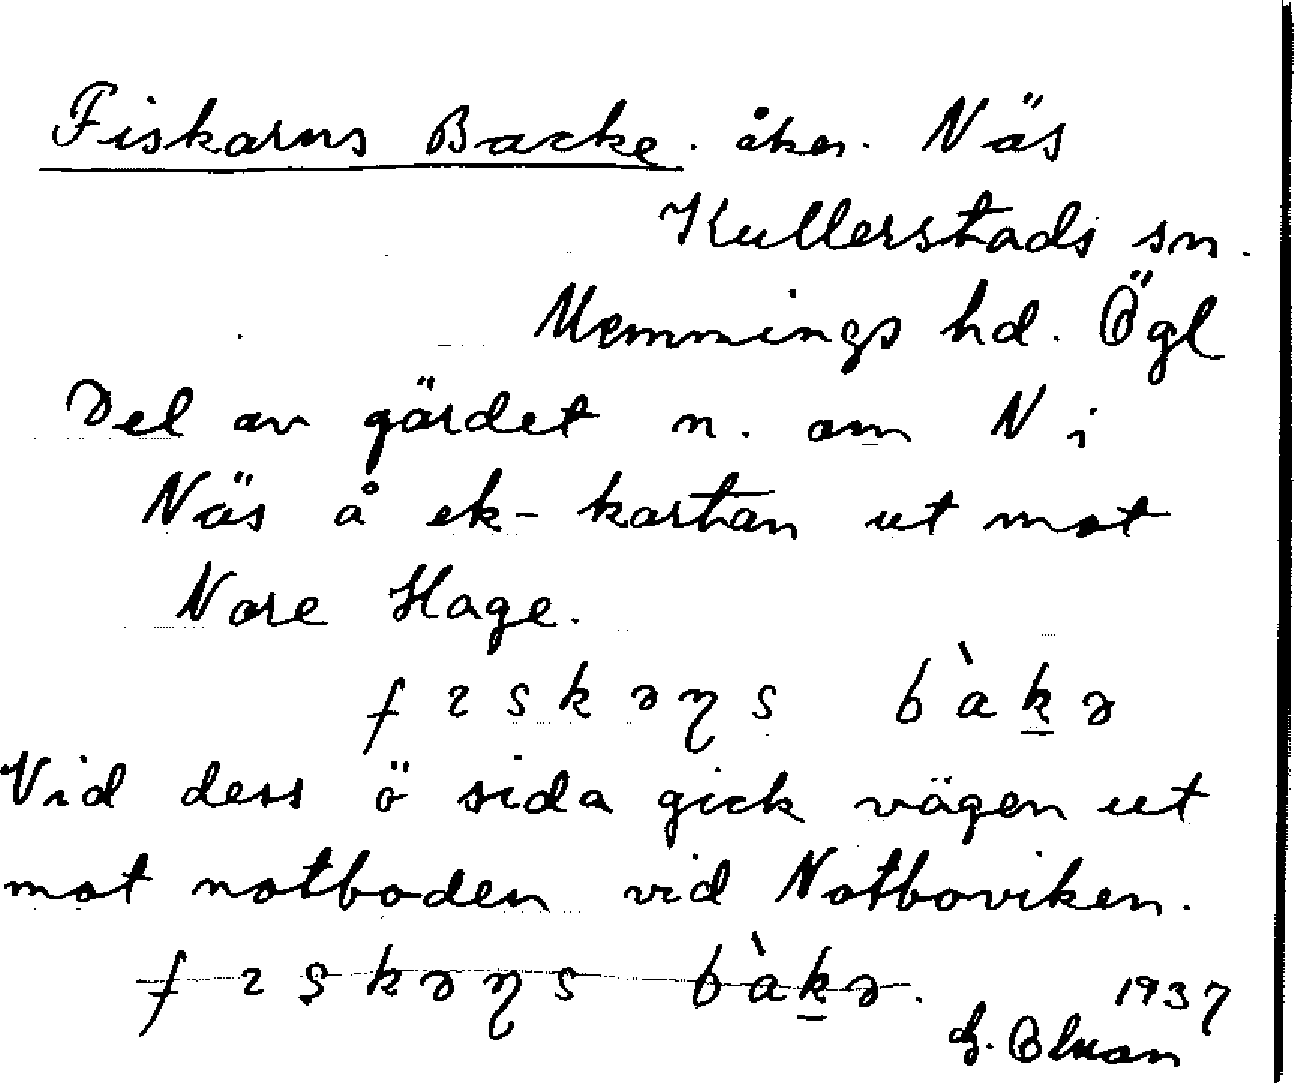 Fiskarns Backe. åker. Näs
Kullerstads sn.
Memmings hd. Ögl
Del av gärdet n. om N i
Näs å ek-kartan ut mot
Nore Hage.
fɪskəɳs bàk̲ə
Vid dess ö sida gick vägen ut
mot notboden vid Notboviken.
fɪskəɳs bàk̲ə. 1937
G.